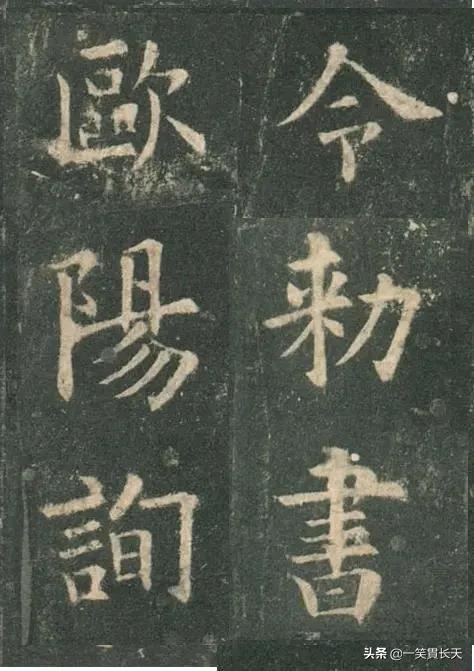 令勑書
歐陽詢
头条 @一笑胃长天